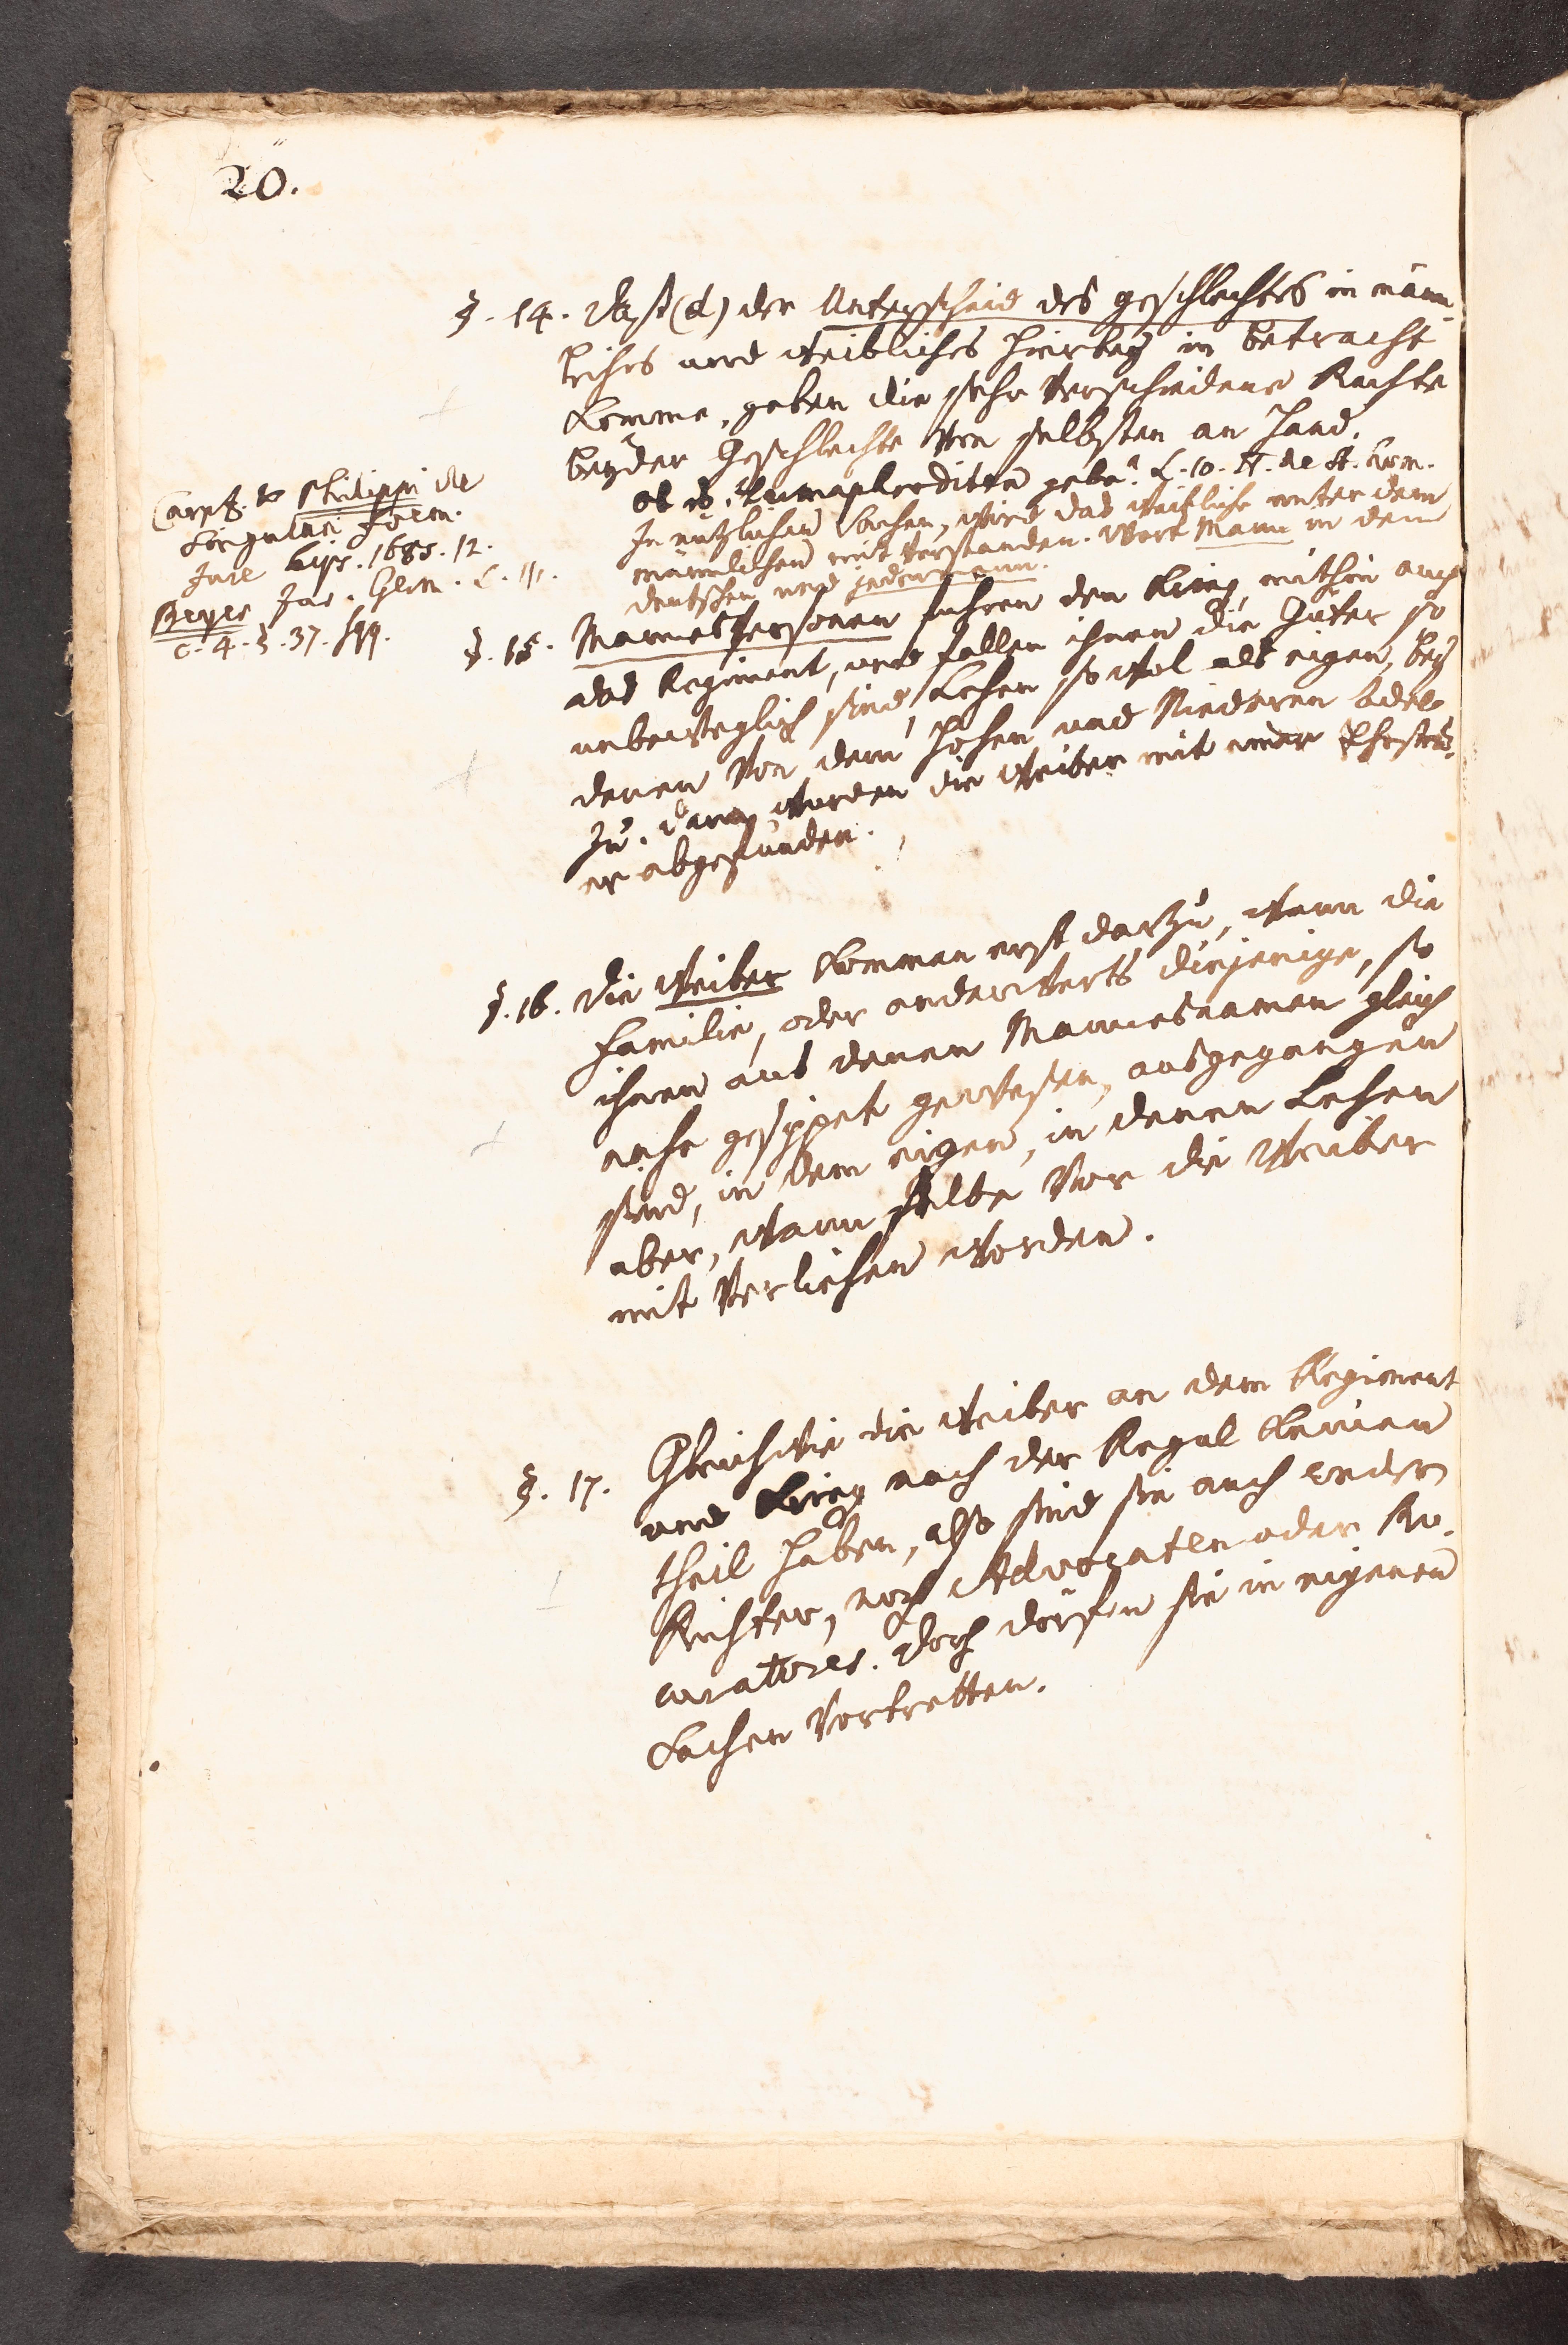 20.
§. 14. Daß (d) der Unterscheid des geschlechtes in männ-
liches und weibliches hierbey in betracht
komme, geben die sehr verschiedene Rechte
beyder Geschlechte von selbsten an Hand.
ob es Hermaphroditen gebe? L. 10. ff. de st. hom.
In nützlichen Sachen, wird das weibliche unter dem
männlichen mit verstanden. Wort Mann in dem
deutschen und jedermann.
Carpz. & Philippi de
singulari foem.
Jure Lips. 1685. 12.
Beyer Jur. Germ. L. III.
c. 4. §. 37. sqq.
§. 15. Mannespersonen führen den Krieg, mithin auch
das Regiment, und fallen ihnen die Güter so
unbeweglich sind, Lehen so wol als eigen, bey
denen von dem hohen und Niederen adel
zu. darin wurden die Weiber mit einer Ehesteu-
er abgefunden.
§. 16. Die Weiber kommen erst darzu, wann die
Familie, oder anderwerts diejenige, so
ihnen aus denen Mannesnamen gleich
nahe gesippet gewesen, ausgegangen
sind, in dem eigen, in denen Lehen
aber, wann selbe vor die Weiber
mit verliehen worden.
§. 17. Gleichwie die Weiber an dem Regiment
und Krieg nach der Regul keinen
theil haben, also sind sie auch weder
Richter, noch Advocaten oder Pro-
curatores. Doch dörfen sie in eigenen
Sachen vortretten.